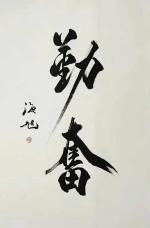 勤奮
海旭